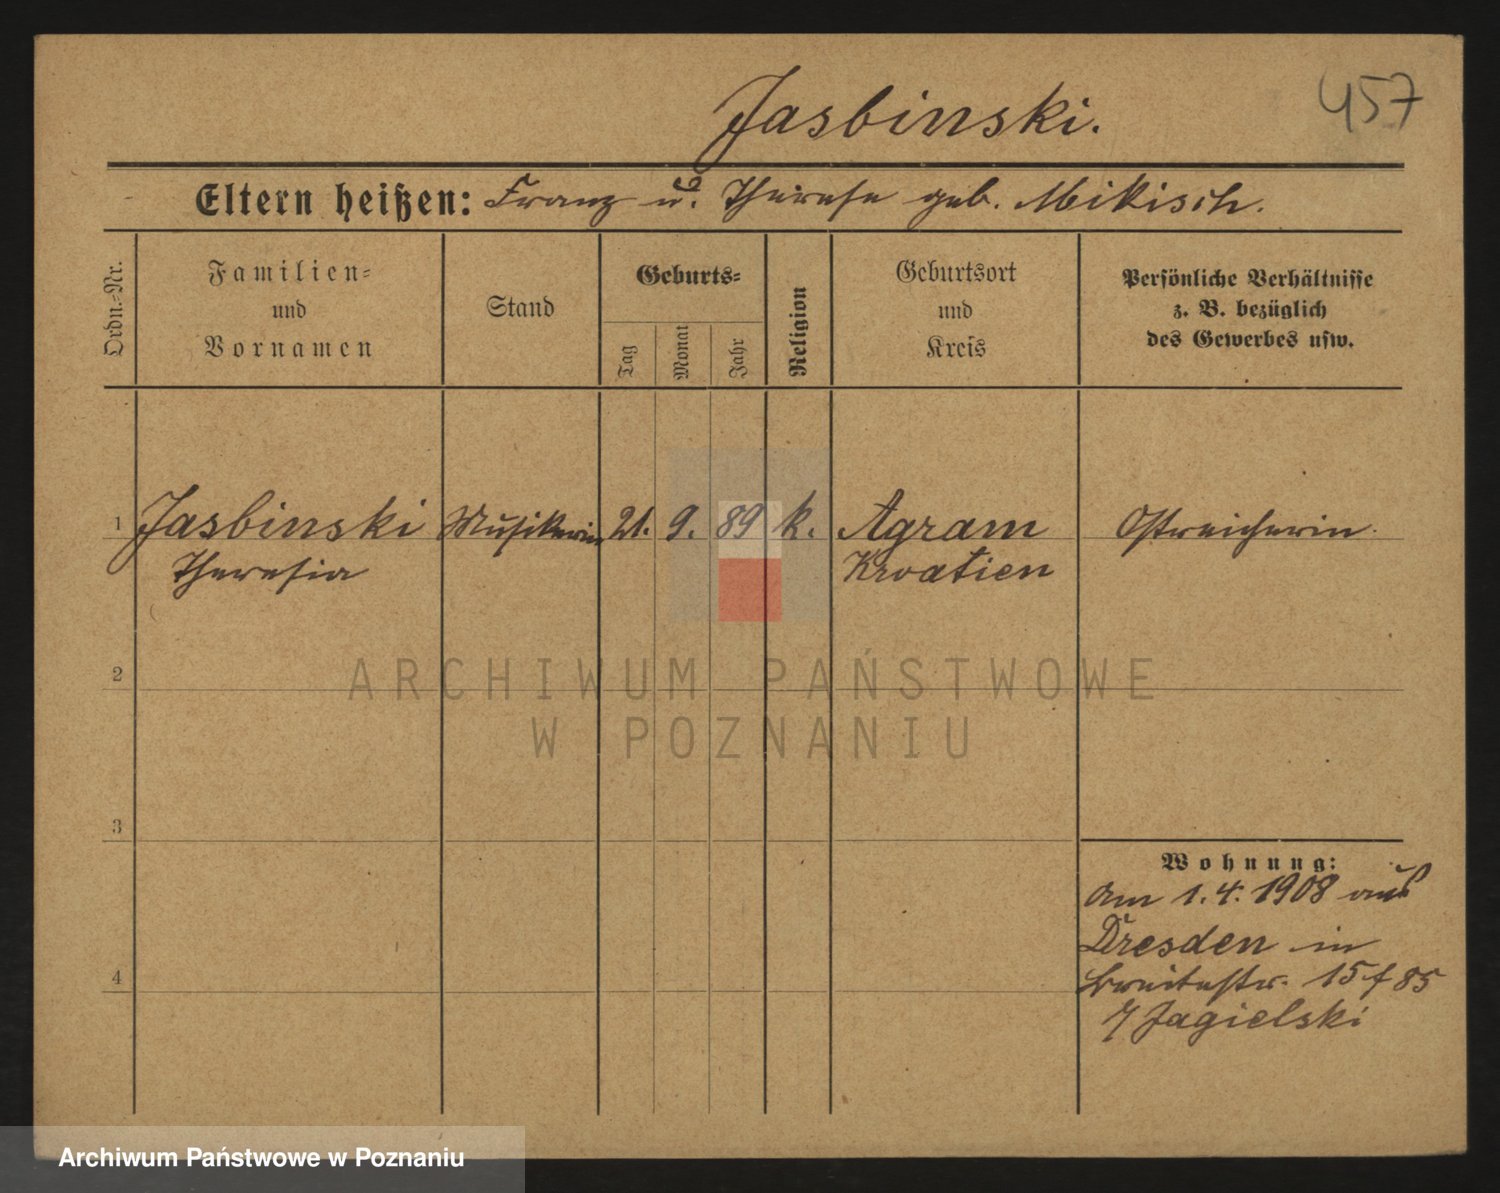 Jasbinski.
457
Eltern heißen: Franz u. Therese geb. Mikisch.
Ordn.-Nr.
Familien-
und
Vornamen
Stand
Geburts-
Tag
Monat
Jahr
Religion
Geburtsort
und
Kreis
Persönliche Verhältnisse
z. B. bezüglich
des Gewerbes usw.
1 Jasbinski Musikerin 21. 9. 89 k. Agram Ostreicherin.
Theresia Kroatien
2
3
4
Wohnung:
Am 1.4.1908 aus
Dresden in
Breitestr. 15 f 85
Jagielski
ARCHIWUM PAŃSTWOWE
W POZNANIU
Archiwum Państwowe w Poznaniu